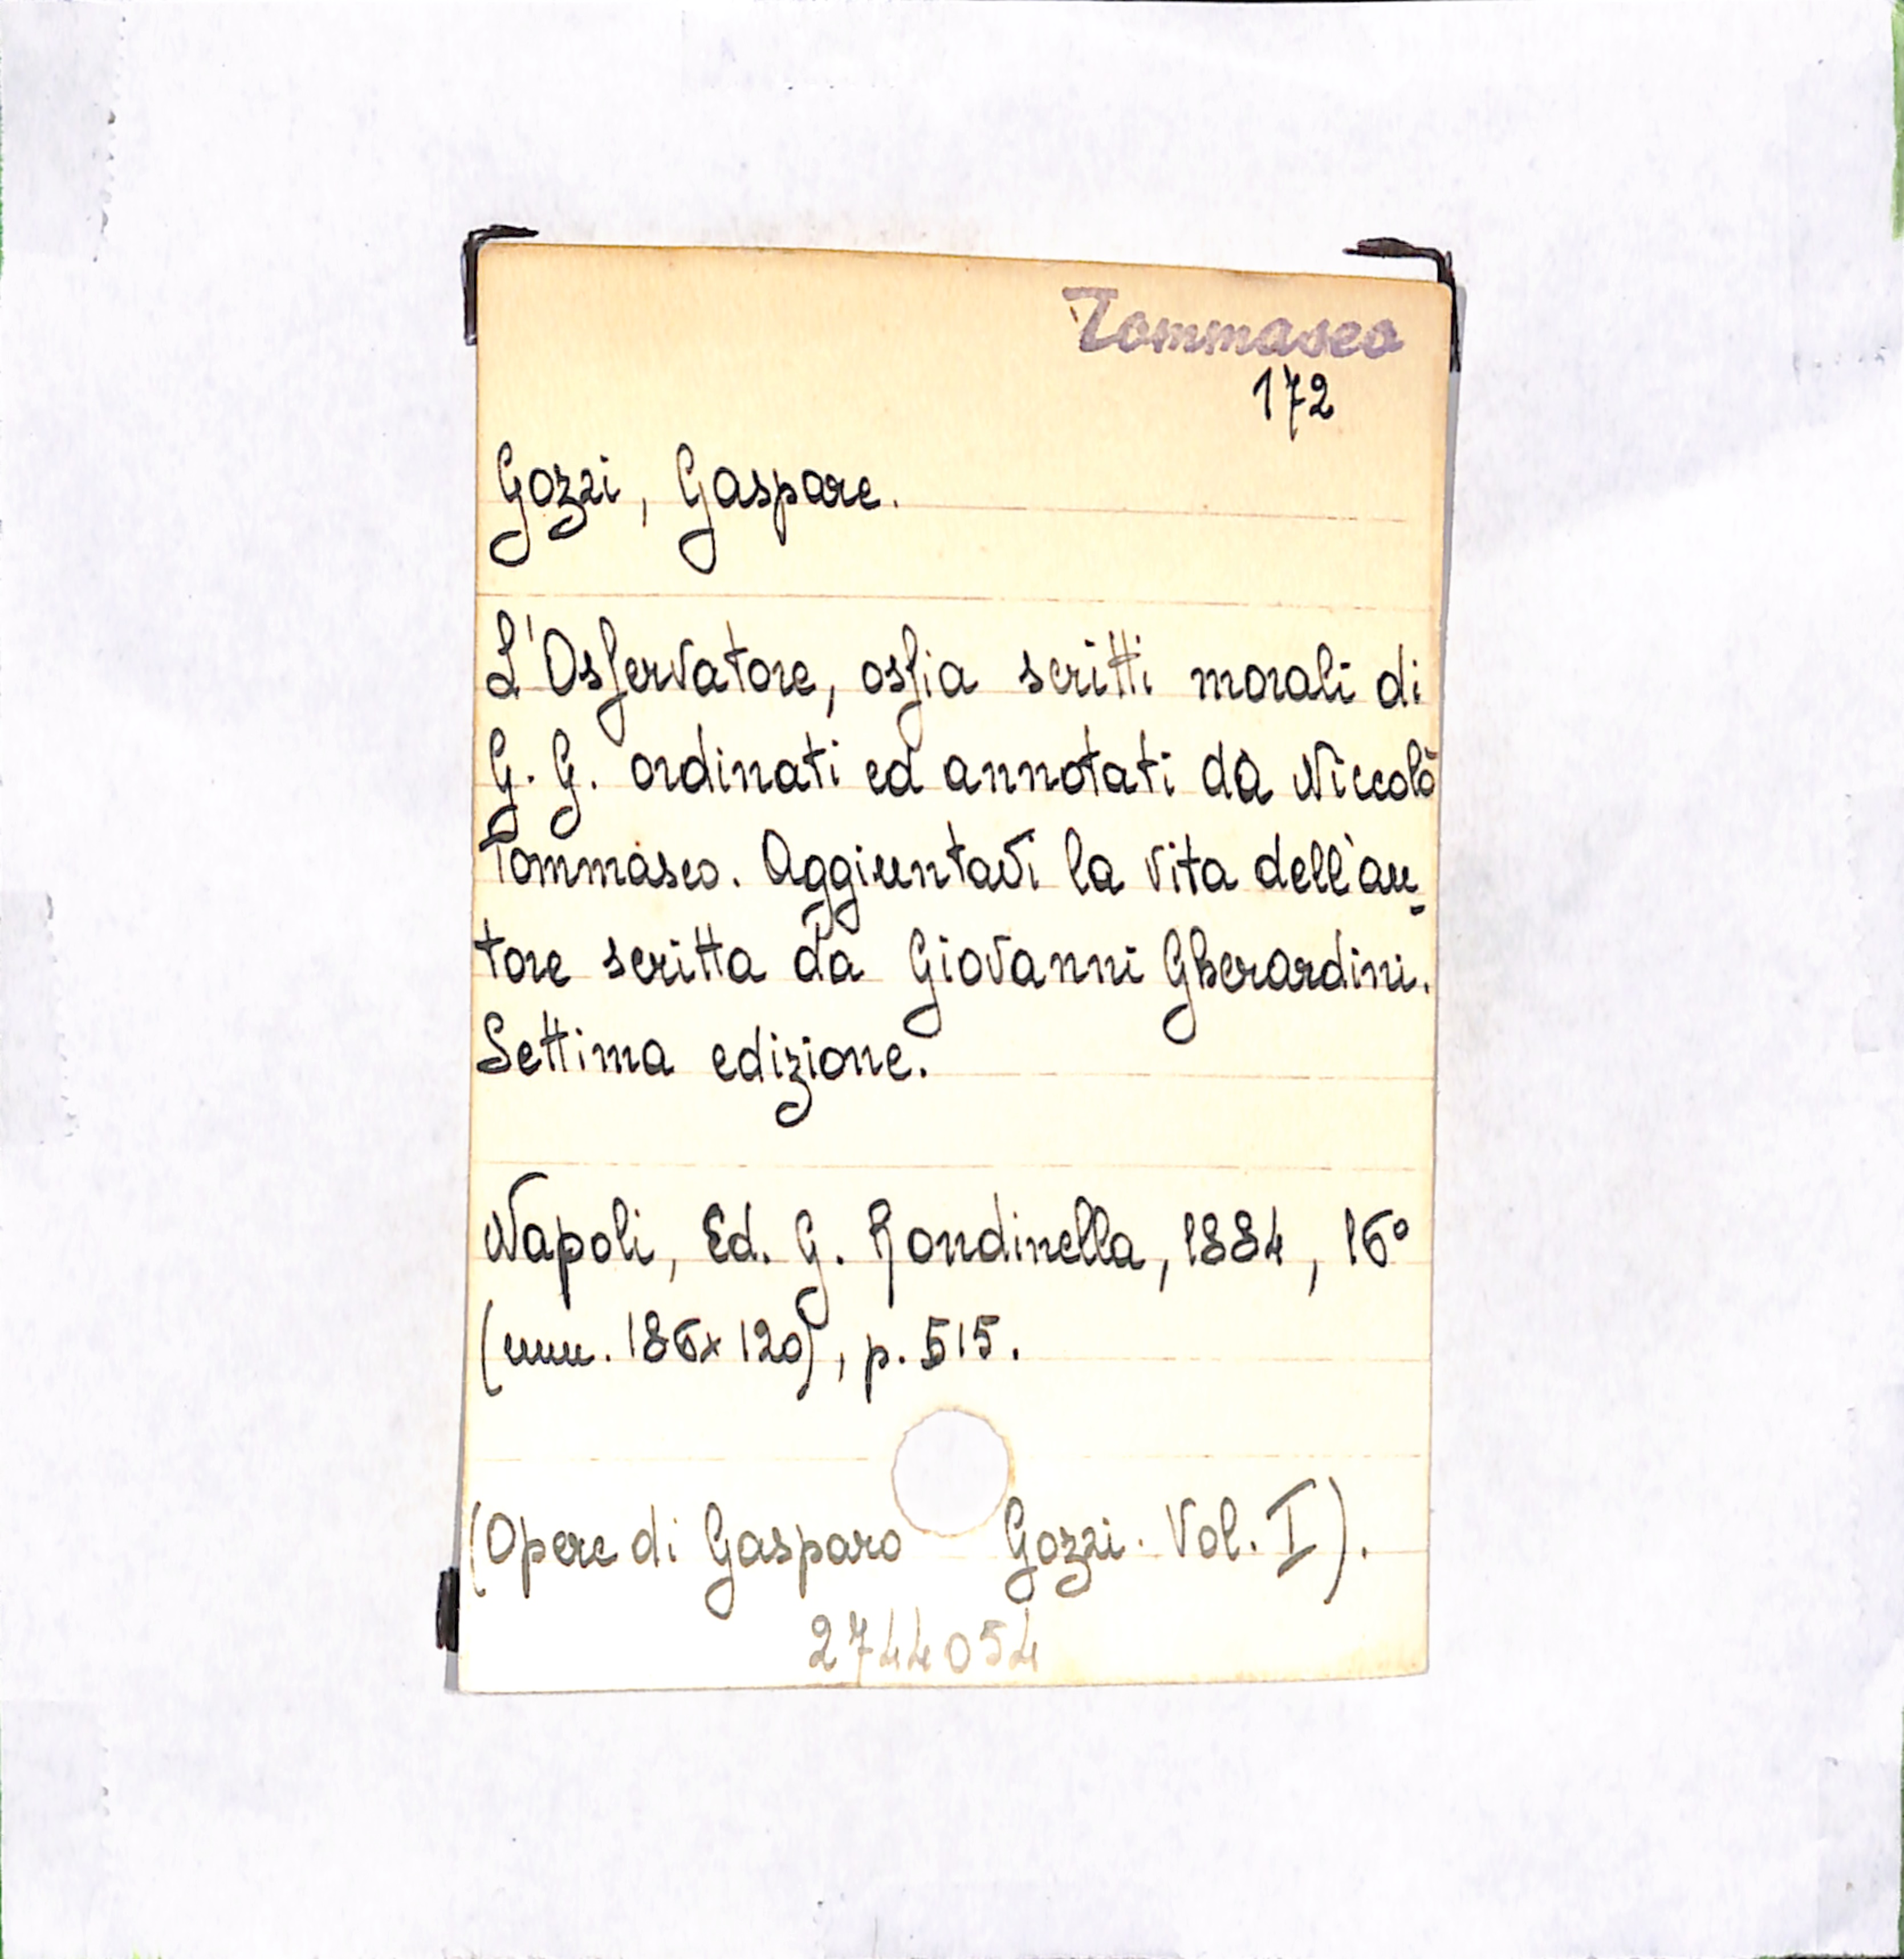 Tommaseo
172
Gozzi, Gaspare.
L'Osſervatore, osſia scritti morali di
G. G. ordinati ed annotati da Niccolò
Tommaseo. Aggiuntavi la vita dell'au-
tore scritta da Giovanni Gherardini.
Settima edizione.
Napoli, Ed. G. Rondinella, 1884, 16°
(mm. 186x120), p. 515.
(Opere di Gasparo Gozzi. Vol. I).
2744054